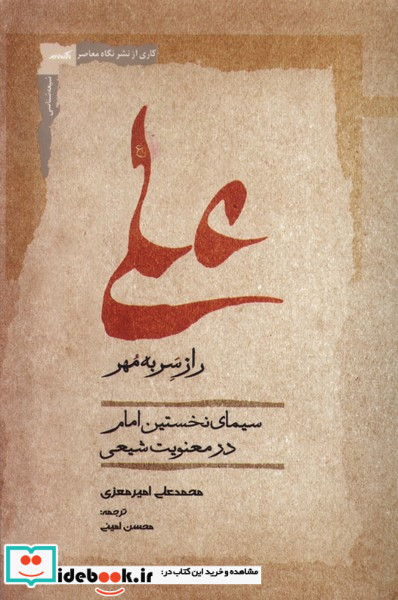 کاری از نشر نگاه معاصر
شیعه‌شناسی
علی
راز سَر به مُهر
سیمای نخستین امام
در معنویت شیعی
محمدعلی امیرمعزی
ترجمه:
محسن امینی
مشاهده و خرید این کتاب در:
idebook.ir